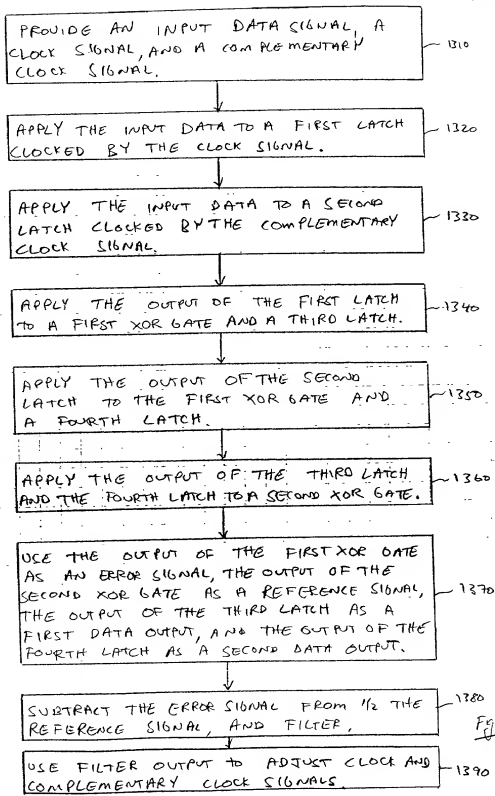 PROVIDE AN INPUT DATA SIGNAL, A
CLOCK SIGNAL, AND A COMPLEMENTARY
CLOCK SIGNAL.
1310
APPLY THE INPUT DATA TO A FIRST LATCH
CLOCKED BY THE CLOCK SIGNAL.
1320
APPLY THE INPUT DATA TO A SECOND
LATCH CLOCKED BY THE COMPLEMENTARY
CLOCK SIGNAL.
1330
APPLY THE OUTPUT OF THE FIRST LATCH
TO A FIRST XOR GATE AND A THIRD LATCH.
1340
APPLY THE OUTPUT OF THE SECOND
LATCH TO THE FIRST XOR GATE AND
A FOURTH LATCH.
1350
APPLY THE OUTPUT OF THE THIRD LATCH
AND THE FOURTH LATCH TO A SECOND XOR GATE.
1360
USE THE OUTPUT OF THE FIRST XOR GATE
AS AN ERROR SIGNAL, THE OUTPUT OF THE
SECOND XOR GATE AS A REFERENCE SIGNAL,
THE OUTPUT OF THE THIRD LATCH AS A
FIRST DATA OUTPUT, AND THE OUTPUT OF THE
FOURTH LATCH AS A SECOND DATA OUTPUT.
1370
SUBTRACT THE ERROR SIGNAL FROM 1/2 THE
REFERENCE SIGNAL, AND FILTER.
1380
USE FILTER OUTPUT TO ADJUST CLOCK AND
COMPLEMENTARY CLOCK SIGNALS.
1390